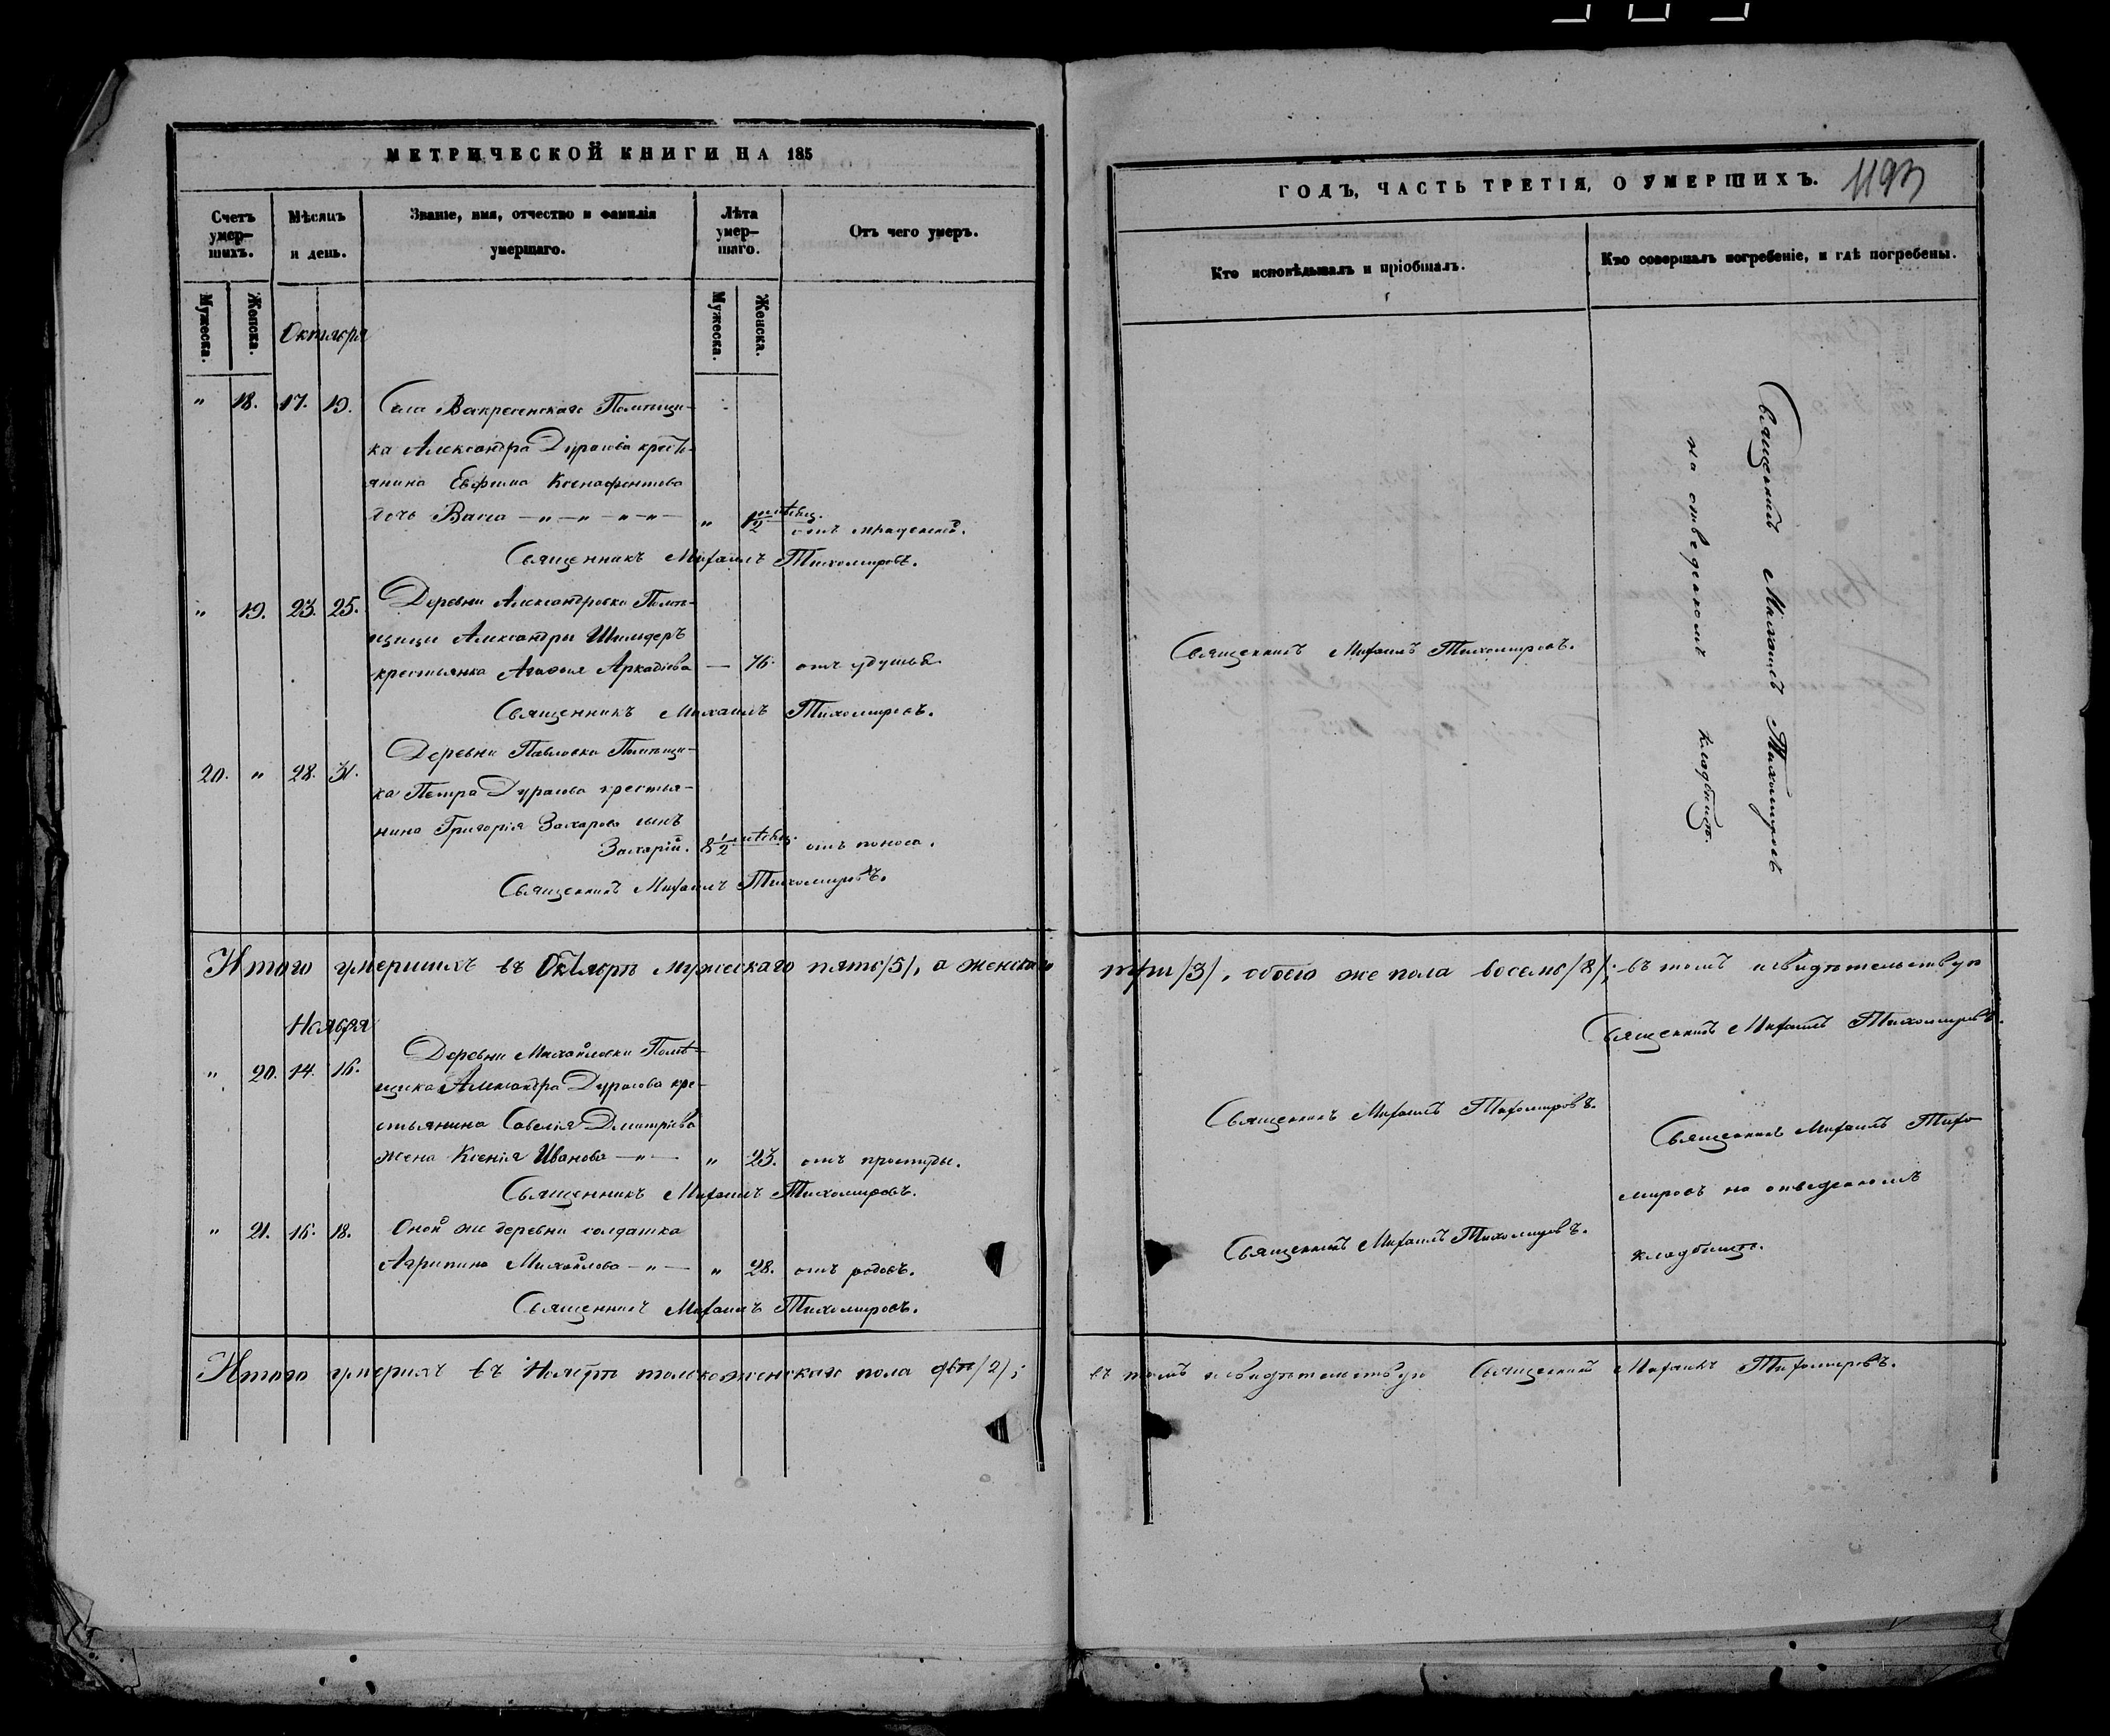 МЕТРИЧЕСКОЙ КНИГИ НА 185
Счетъ умер-шихъ.
Мѣсяцъ и день.
Званіе, имя, отчество и фамилія умершаго.
Лѣта умер-шаго.
Отъ чего умеръ.
Мужеска.
Женска.
Мужеска.
Женска.
Октября
" 18. 17. 19. Села Воскресенскаго Помѣщи-
ка Александра Дурасова кресть-
янина Евфима Ксенофонтова
дочь Васса —"—"—"—"— " 1/2 мѣсяц. отъ младенской.
Священникъ Михаилъ Тихомировъ.
" 19. 23. 25. Деревни Александровки Помѣ-
щицы Александры Шильдеръ
крестьянка Агафья Аркадіева — 76. отъ удушья.
Священникъ Михаилъ Тихомировъ.
20. " 28. 31. Деревни Павловки Помѣщи-
ка Петра Дурасова крестья-
нина Григорія Захарова сынъ
Захарій. 8 1/2 мѣсяц. отъ поноса.
Священникъ Михаилъ Тихомировъ.
Итого умершихъ въ Октябрѣ мужескаго пять /5/, а женскаго
Ноября
" 20. 14. 16. Деревни Михайловки Помѣ-
щика Александра Дурасова кре-
стьянина Савелія Дмитріева
жена Ксенія Иванова —"— " 23. отъ простуды.
Священникъ Михаилъ Тихомировъ.
" 21. 16. 18. Оной же деревни солдатка
Агрипина Михайлова —"— " 28. отъ родовъ.
Священникъ Михаилъ Тихомировъ.
Итого умершихъ въ Ноябрѣ только женскаго пола двѣ /2/;
ГОДЪ, ЧАСТЬ ТРЕТІЯ, О УМЕРШИХЪ.
1193
Кто исповѣдывалъ и пріобщалъ.
Кто совершалъ погребеніе, и гдѣ погребены.
Священникъ Михаилъ Тихомировъ
на отведенномъ кладбищѣ.
Священникъ Михаилъ Тихомировъ.
три /3/, обоего же пола восемь /8/; въ томъ и свидѣтельствую
Священникъ Михаилъ Тихомировъ.
Священникъ Михаилъ Тихомировъ.
Священникъ Михаилъ Тихо
мировъ на отведенномъ
кладбищѣ.
Священникъ Михаилъ Тихомировъ.
въ томъ и свидѣтельствую Священникъ Михаилъ Тихомировъ.